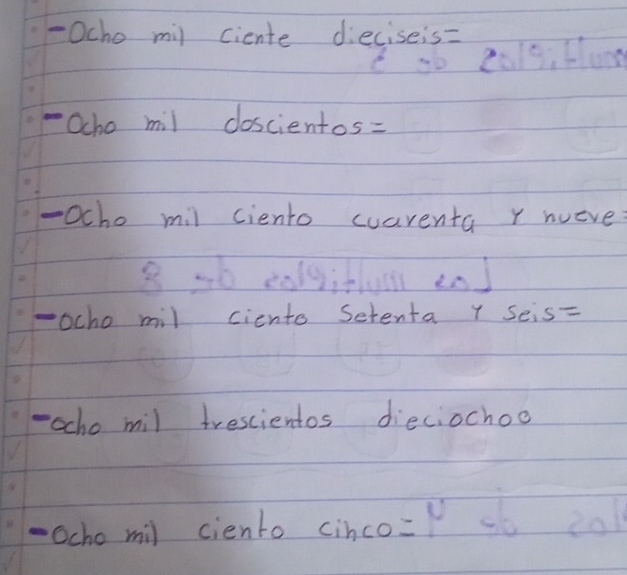 -Ocho mil ciente dieciseis=
-Ocho mil doscientos=
-Ocho mil ciento cuarenta y nueve=
-ocho mil ciento setenta y seis=
-ocho mil trescientos dieciochoo
-Ocho mil ciento cinco=